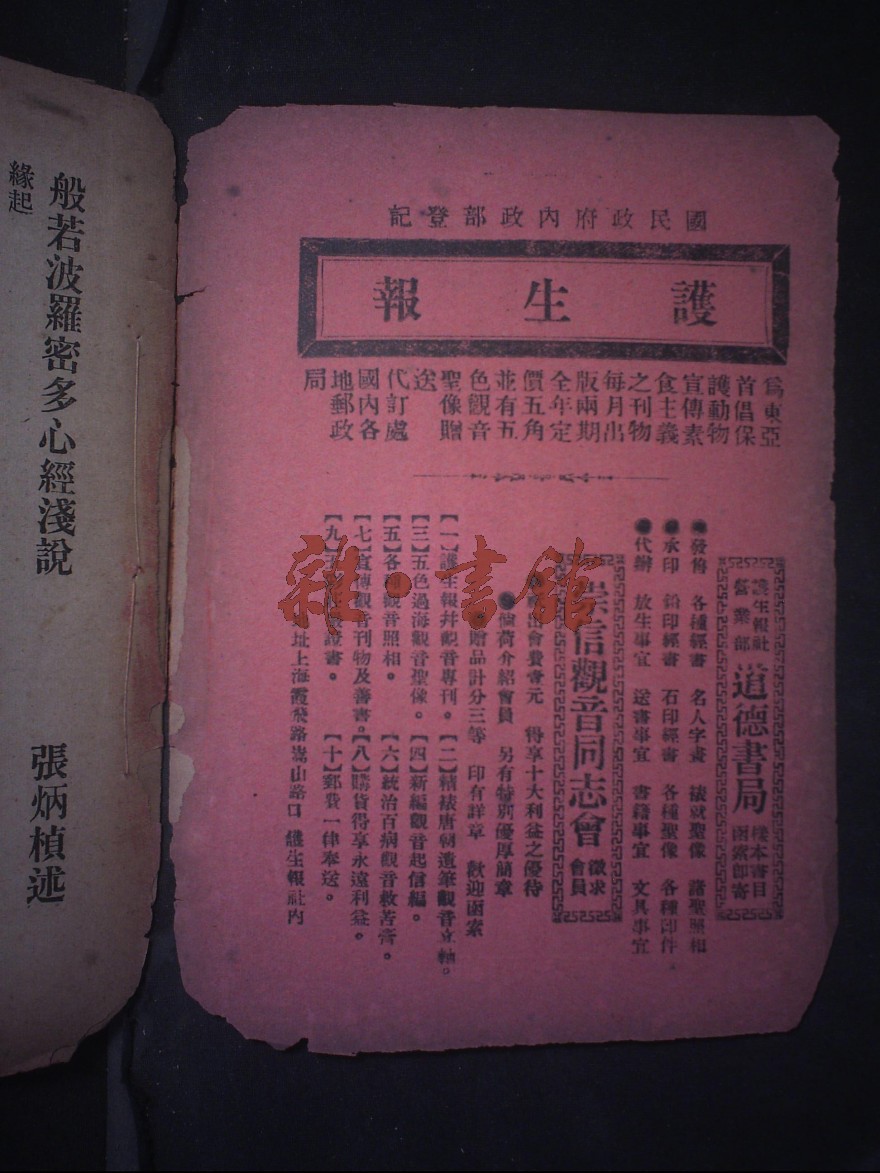 國民政府內政部登記
護生報
為東亞
首倡保
護動物
宣傳素
食主義
之刊物
每月出
版兩期
全年定
價五角
並有五
色觀音
聖像贈
送
代訂處
國內各
地郵政
局
護生報社
營業部
道德書局
樣本書目
函索即寄
發售 各種經書 名人字畫 裱就聖像 諸聖照相
承印 鉛印經書 石印經書 各種聖像 各種印件
代辦 放生事宜 送書事宜 書籍事宜 文具事宜
崇信觀音同志會
徵求
會員
會費壹元 得享十大利益之優待
倘荷介紹會員 另有特別優厚簡章
贈品計分三等 印有詳章 歡迎函索
【一】護生報并觀音專刊。【二】精裱唐朝遺筆觀音立軸。
【三】五色過海觀音聖像。【四】新編觀音起信編。
【五】各種觀音照相。【六】統治百病觀音救苦膏。
【七】宣傳觀音刊物及善書。【八】購貨得享永遠利益。
【九】證書。【十】郵費一律奉送。
址上海霞飛路嵩山路口 護生報社內
般若波羅密多心經淺說
張炳楨述
緣起
雜·書館